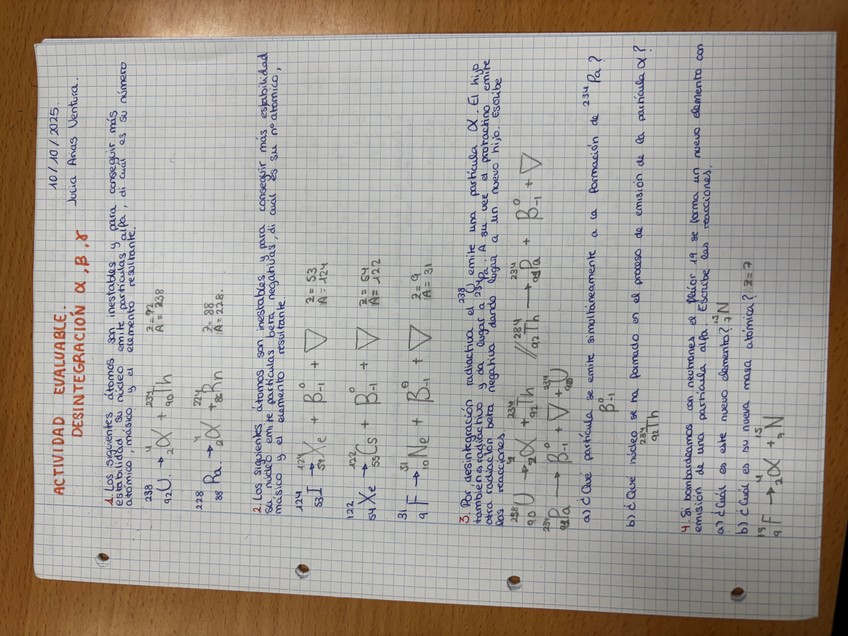 10/10/2025.
ACTIVIDAD EVALUABLE. Julia Arias Ventura.
DESINTEGRACIÓN α, β, γ
1. Los siguientes átomos son inestables y para conseguir más
estabilidad su núcleo emite partículas alfa, di cual es su número
atómico, másico y el elemento resultante.
²³⁸₉₂U → ⁴₂α + ²³⁴₉₀Th z=92 A=238
²²⁸₈₈Pa → ⁴₂α + ²²⁴₈₆Rn z=88 A=228.
2. Los siguientes átomos son inestables y para conseguir más estabilidad
su núcleo emite partículas beta negativas, di cual es su nº atómico,
másico y el elemento resultante.
¹²⁴₅₃I → ¹²⁴₅₄Xe + β⁰₋₁ + ▽ z=53 A=124
¹²²₅₄Xe → ¹²²₅₅Cs + β⁰₋₁ + ▽ z=54 A=122
³¹₉F → ³¹₁₀Ne + β⁰₋₁ + ▽ z=9 A=31
3. Por desintegración radiactiva el ²³⁸U emite una partícula α. El hijo
también es radiactivo y da lugar a ²³⁴Pa. A su vez el protactino emite
otra radiación beta negativa dando lugar a un nuevo hijo. Escribe
las reacciones
²³⁸₉₀U → ⁴₂α + ²³⁴₉₂Th // ²³⁴₉₂Th → ²³⁴₉₃Pa + β⁰₋₁ + ▽
Pa → β⁰₋₁ + ▽ + U
a) ¿Qué partícula se emite simultáneamente a la formación de ²³⁴Pa?
β⁰₋₁
b) ¿Qué núcleo se ha formado en el proceso de emisión de la partícula α?
²³⁴₉₂Th
4. Si bombardeamos con neutrones el flúor 19 se forma un nuevo elemento con
emisión de una partícula alfa. Escribe las reacciones.
a) ¿Cuál es este nuevo elemento? ¹⁵₇N
b) ¿Cuál es su nueva masa atómica? z=7
¹⁹₉F → ⁴₂α + ¹⁵₇N